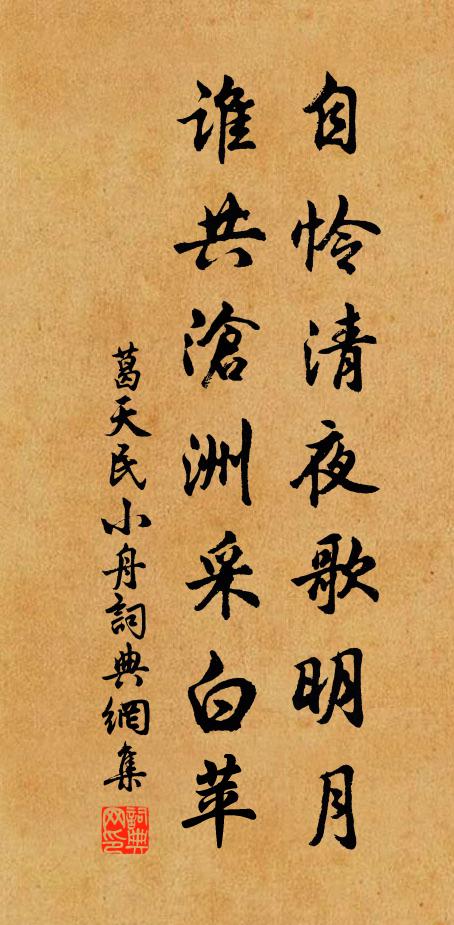 自怜清夜歌明月
谁共滄洲采白苹
葛天民小舟詞典網集
詞典网印